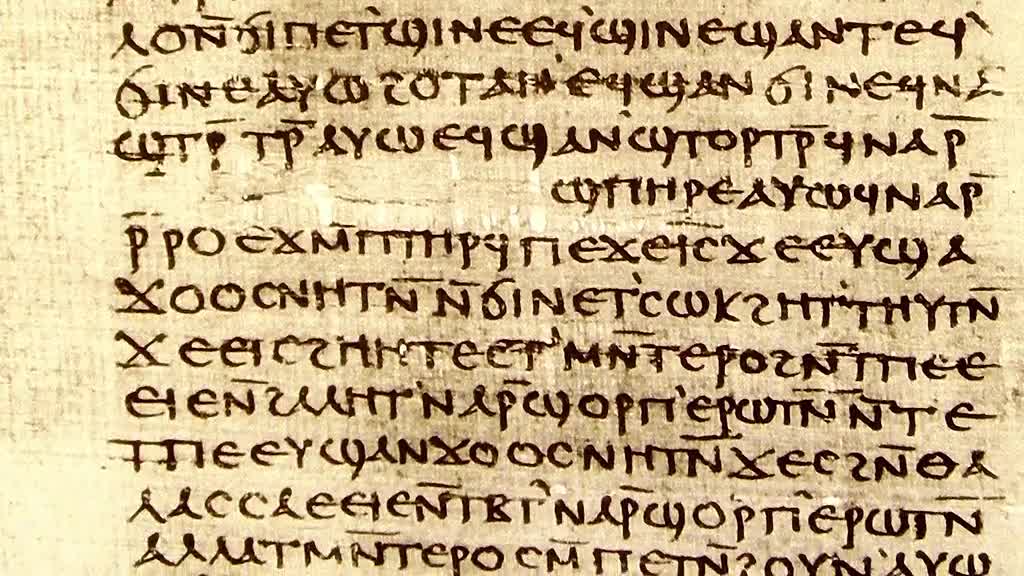 ⲗⲟⲛ̄ϭⲓⲡⲉⲧ'ϣⲓⲛⲉⲉϥ'ϣⲓⲛⲉϣⲁⲛⲧⲉϥ'
ϭⲓⲛⲉⲁⲩⲱϩⲟⲧⲁⲛ'ⲉϥϣⲁⲛϭⲓⲛⲉϥⲛⲁ
ϣⲧⲣ̄ⲧⲣ̄ⲁⲩⲱⲉϥϣⲁⲛ'ϣⲧⲟⲣⲧⲣ̄ϥⲛⲁⲣ̄
ϣⲡⲏⲣⲉⲁⲩⲱϥⲛⲁⲣ̄
ⲣ̄ⲣⲟⲉϫⲙ̄ⲡⲧⲏⲣϥⲡⲉϫⲉⲓ̄ⲥ̄ϫⲉⲉⲩϣⲁ
ϫⲟⲟⲥⲛⲏⲧⲛ̄ⲛ̄ϭⲓⲛⲉⲧ'ⲥⲱⲕϩⲏⲧ'ⲧⲏⲩⲧⲛ̄
ϫⲉⲉⲓⲥϩⲏⲏⲧⲉⲉⲧ'ⲙⲛ̄ⲧⲉⲣⲟϩⲛ̄ⲧⲡⲉⲉ
ⲉⲓⲉⲛ̄ϩⲁⲗⲏⲧ'ⲛⲁⲣ̄ϣⲟⲣⲡ'ⲉⲣⲱⲧⲛ̄ⲛ̄ⲧⲉ
ⲧⲡⲉⲉⲩϣⲁⲛϫⲟⲟⲥⲛⲏⲧⲛ̄ϫⲉⲥϩⲛ̄ⲑⲁ
ⲗⲁⲥⲥⲁⲉⲉⲓⲉⲛ̄ⲧⲃⲧ'ⲛⲁⲣ̄ϣⲟⲣⲡ'ⲉⲣⲱⲧⲛ̄
ⲁⲗⲗⲁⲧⲙⲛ̄ⲧⲉⲣⲟⲥⲙ̄ⲡⲉⲧⲛ̄ϩⲟⲩⲛ'ⲁⲩⲱ